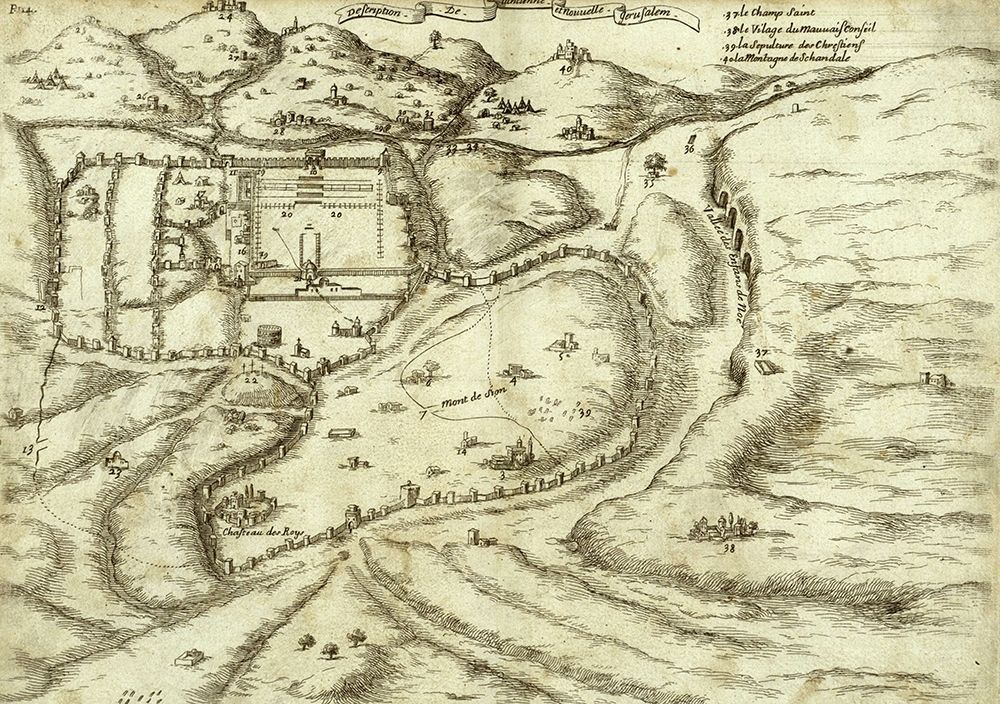 Description De et nouuelle Jerusalem
.37.le Champ Saint
.38 le Vilage du mauuais Conseil
.39 la Sepulture des Chrestiens
40 la Montagne de Schandale
24
25
27
26
28
29
31
40
32 33
36
35
11
19
18
17
20 20
16
19
12
37
5
6
4
22
Mont de Sion
7
39
14
3
13
23
Chasteau des Roys
38